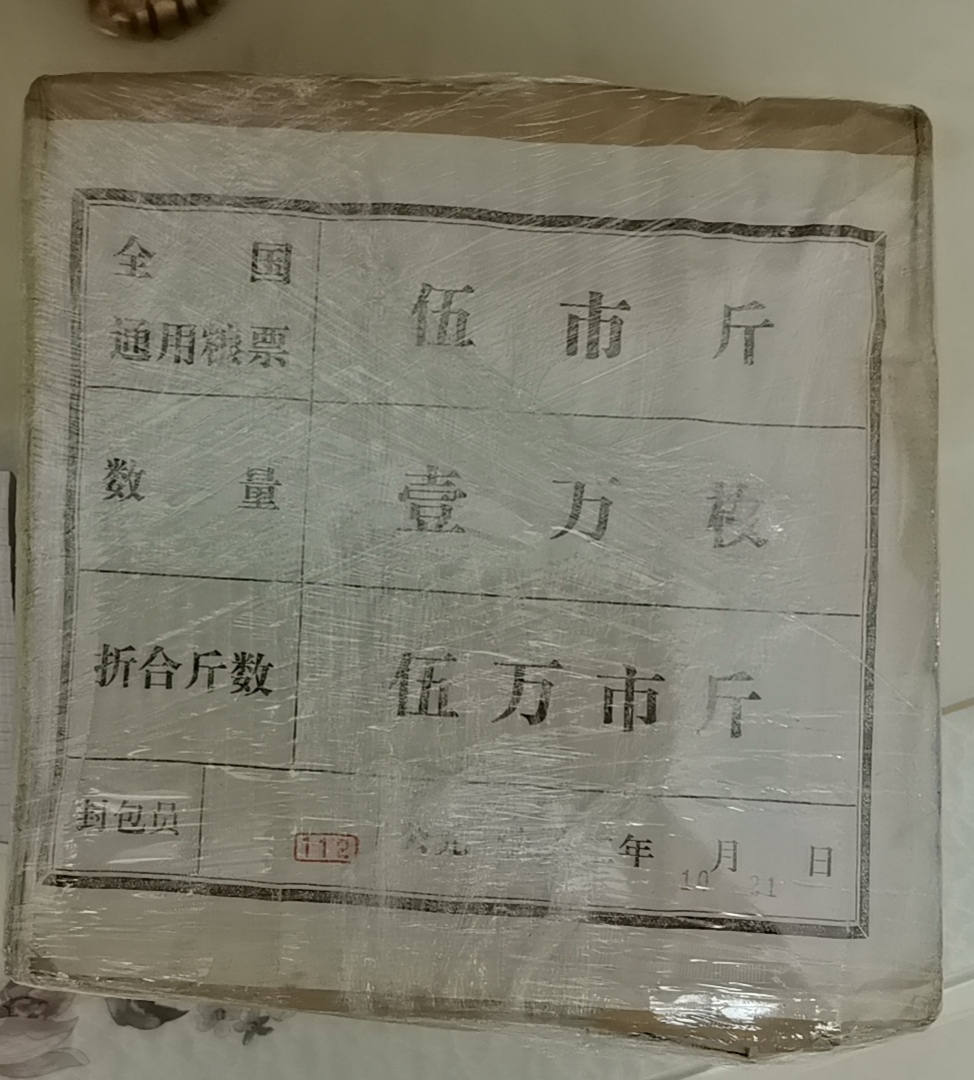 全国
通用粮票
伍市斤
数量
壹万枚
折合斤数
伍万市斤
封包员
112
公元
年 月 日
10 31